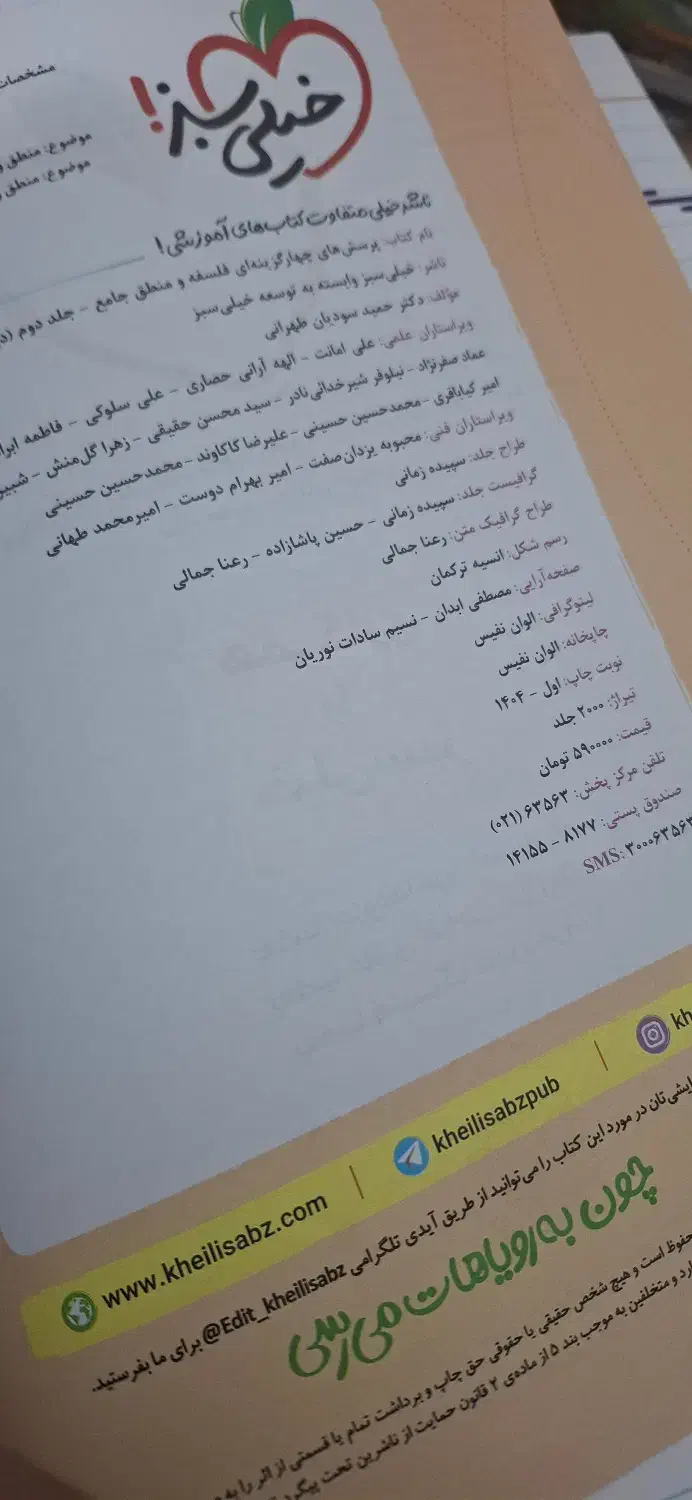 مشخصات
موضوع: منطق
موضوع: منطق
خیلی سبز!
ناشر خیلی متفاوت کتاب‌های آموزشی!
نام کتاب: پرسش‌های چهارگزینه‌ای فلسفه و منطق جامع - جلد دوم
ناشر: خیلی سبز وابسته به توسعه خیلی سبز
مؤلف: دکتر حمید سودیان طهرانی
ویراستاران علمی: علی امانت - الهه آرانی حصاری - علی سلوکی - فاطمه
عماد صفرنژاد - نیلوفر شیرخدائی نادر - سید محسن حقیقی - زهرا گل‌منش -
امیر کیاباقری - محمدحسین حسینی - علیرضا کاکاوند - محمدحسین حسینی
ویراستاران فنی: محبوبه یزدان صفت - امیر بهرام دوست - امیرمحمد طهانی
طراح جلد: سپیده زمانی
گرافیست جلد: سپیده زمانی - حسین پاشازاده - رعنا جمالی
طراح گرافیک متن: رعنا جمالی
رسم شکل: انسیه ترکمان
صفحه‌آرایی: مصطفی ابدان - نسیم سادات نوریان
لیتوگرافی: الوان نفیس
چاپخانه: الوان نفیس
نوبت چاپ: اول - ۱۴۰۴
تیراژ: ۲۰۰۰ جلد
قیمت: ۵۹۰۰۰۰ تومان
تلفن مرکز پخش: ۶۳۵۶۳ (۰۲۱)
صندوق پستی: ۸۱۷۷ - ۱۴۱۵۵
SMS: ۳۰۰۰۶۳۵۶۳
www.kheilisabz.com | kheilisabzpub | kh
تان در مورد این کتاب را می‌توانید از طریق آیدی تلگرامی @Edit_kheilisabz برای ما بفرستید.
چون به رویاهات می‌رسی
است و هیچ شخص حقیقی یا حقوقی حق چاپ و برداشت تمام یا قسمتی از اثر را به
و متخلفین به موجب بند ۵ از ماده‌ی ۲ قانون حمایت از ناشرین تحت